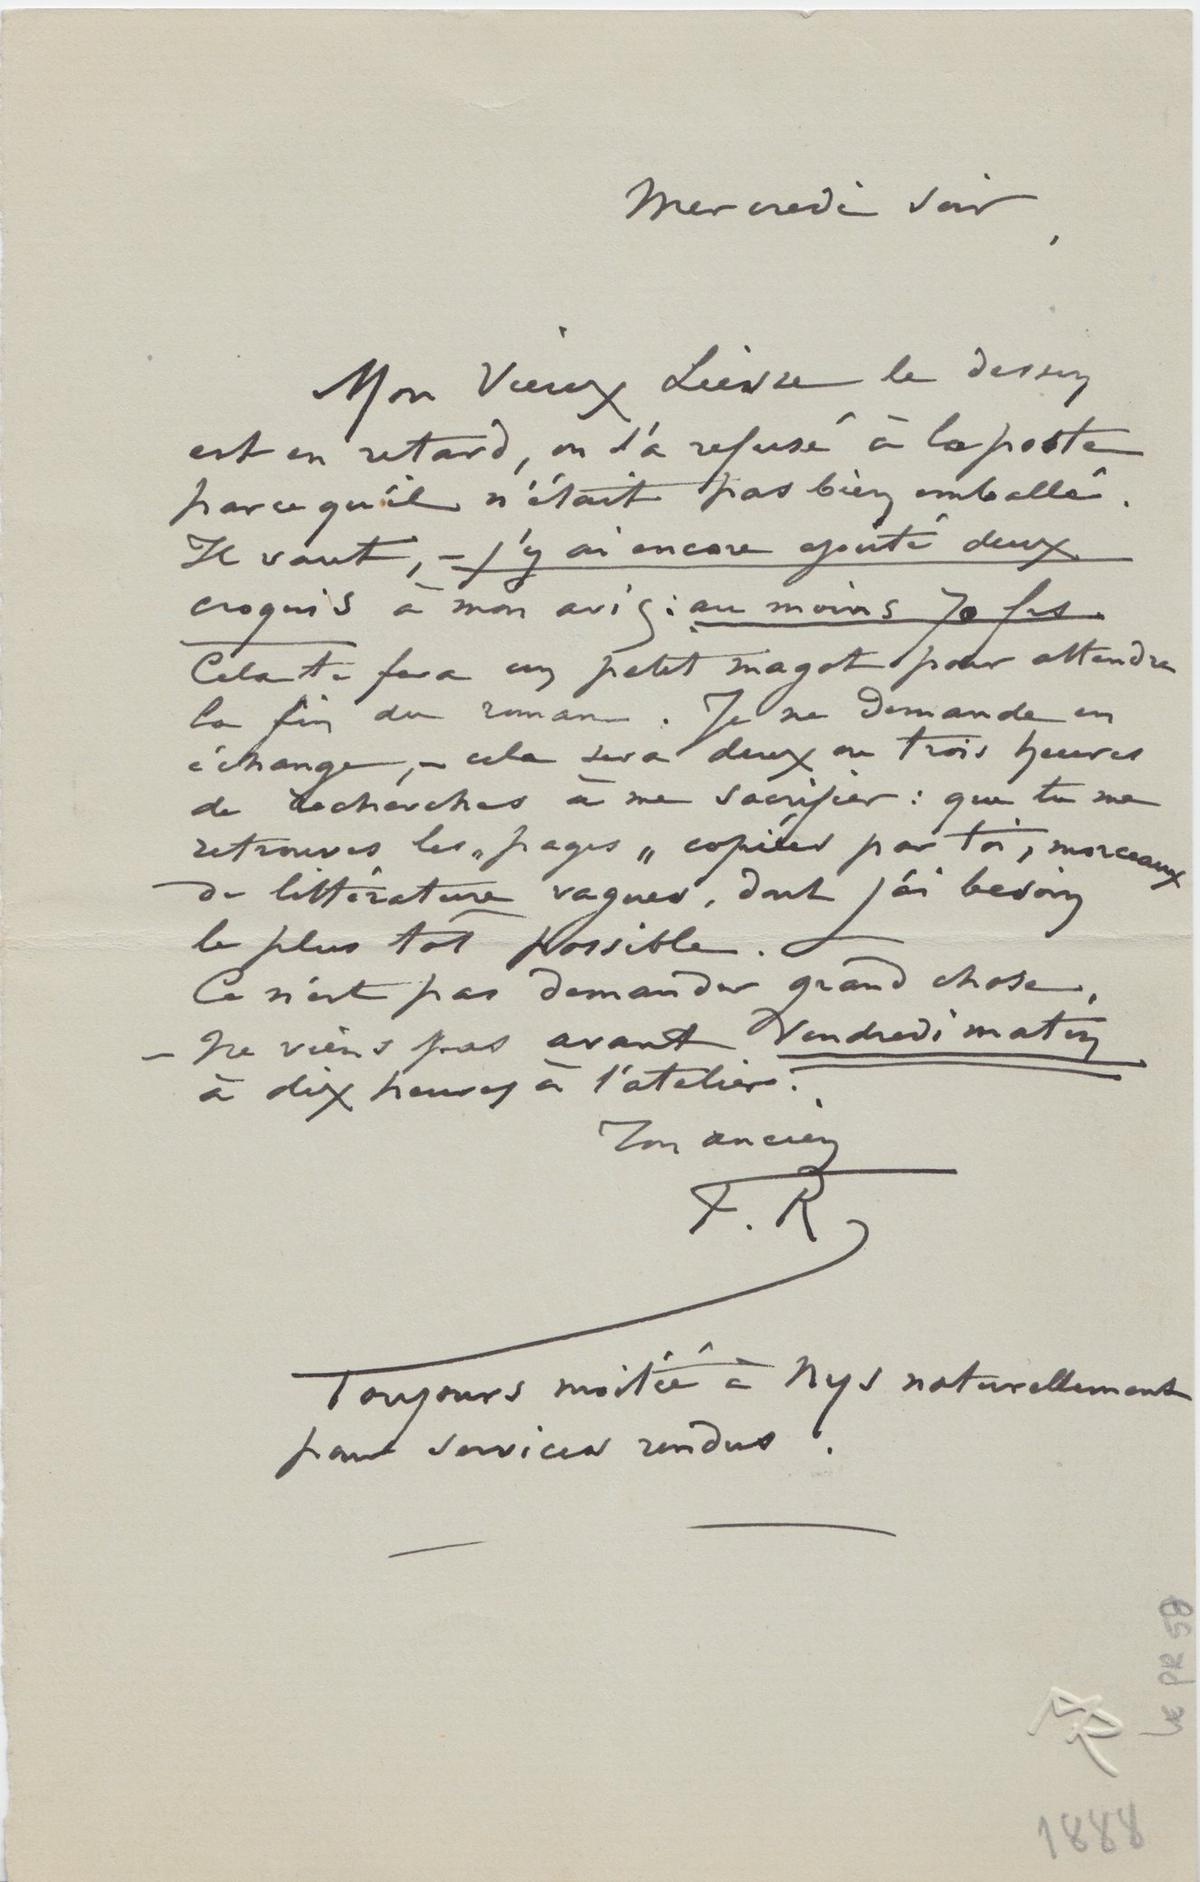 Mercredi soir,
Mon Vieux Liesse le dessin
est en retard, on l'a refusé à la poste
parce qu'il n'était pas bien emballé.
Il vaut, – j'y ai encore ajouté deux
croquis à mon avis : au moins 70 frs.
Cela te fera un petit magot pour attendre
la fin du roman. Je ne demande en
échange, – cela sera deux ou trois heures
de recherches à me sacrifier : que tu me
retrouves les „pages„ copiées par toi, morceaux
de littérature vagues, dont j'ai besoin
le plus tôt possible. –
Ce n'est pas demander grand chose,
– Ne viens pas avant Vendredi matin
à dix heures à l'atelier.
Ton ancien
F. R
Toujours moitié à Nys naturellement
pour services rendus.
LE PR 59
FR
1888